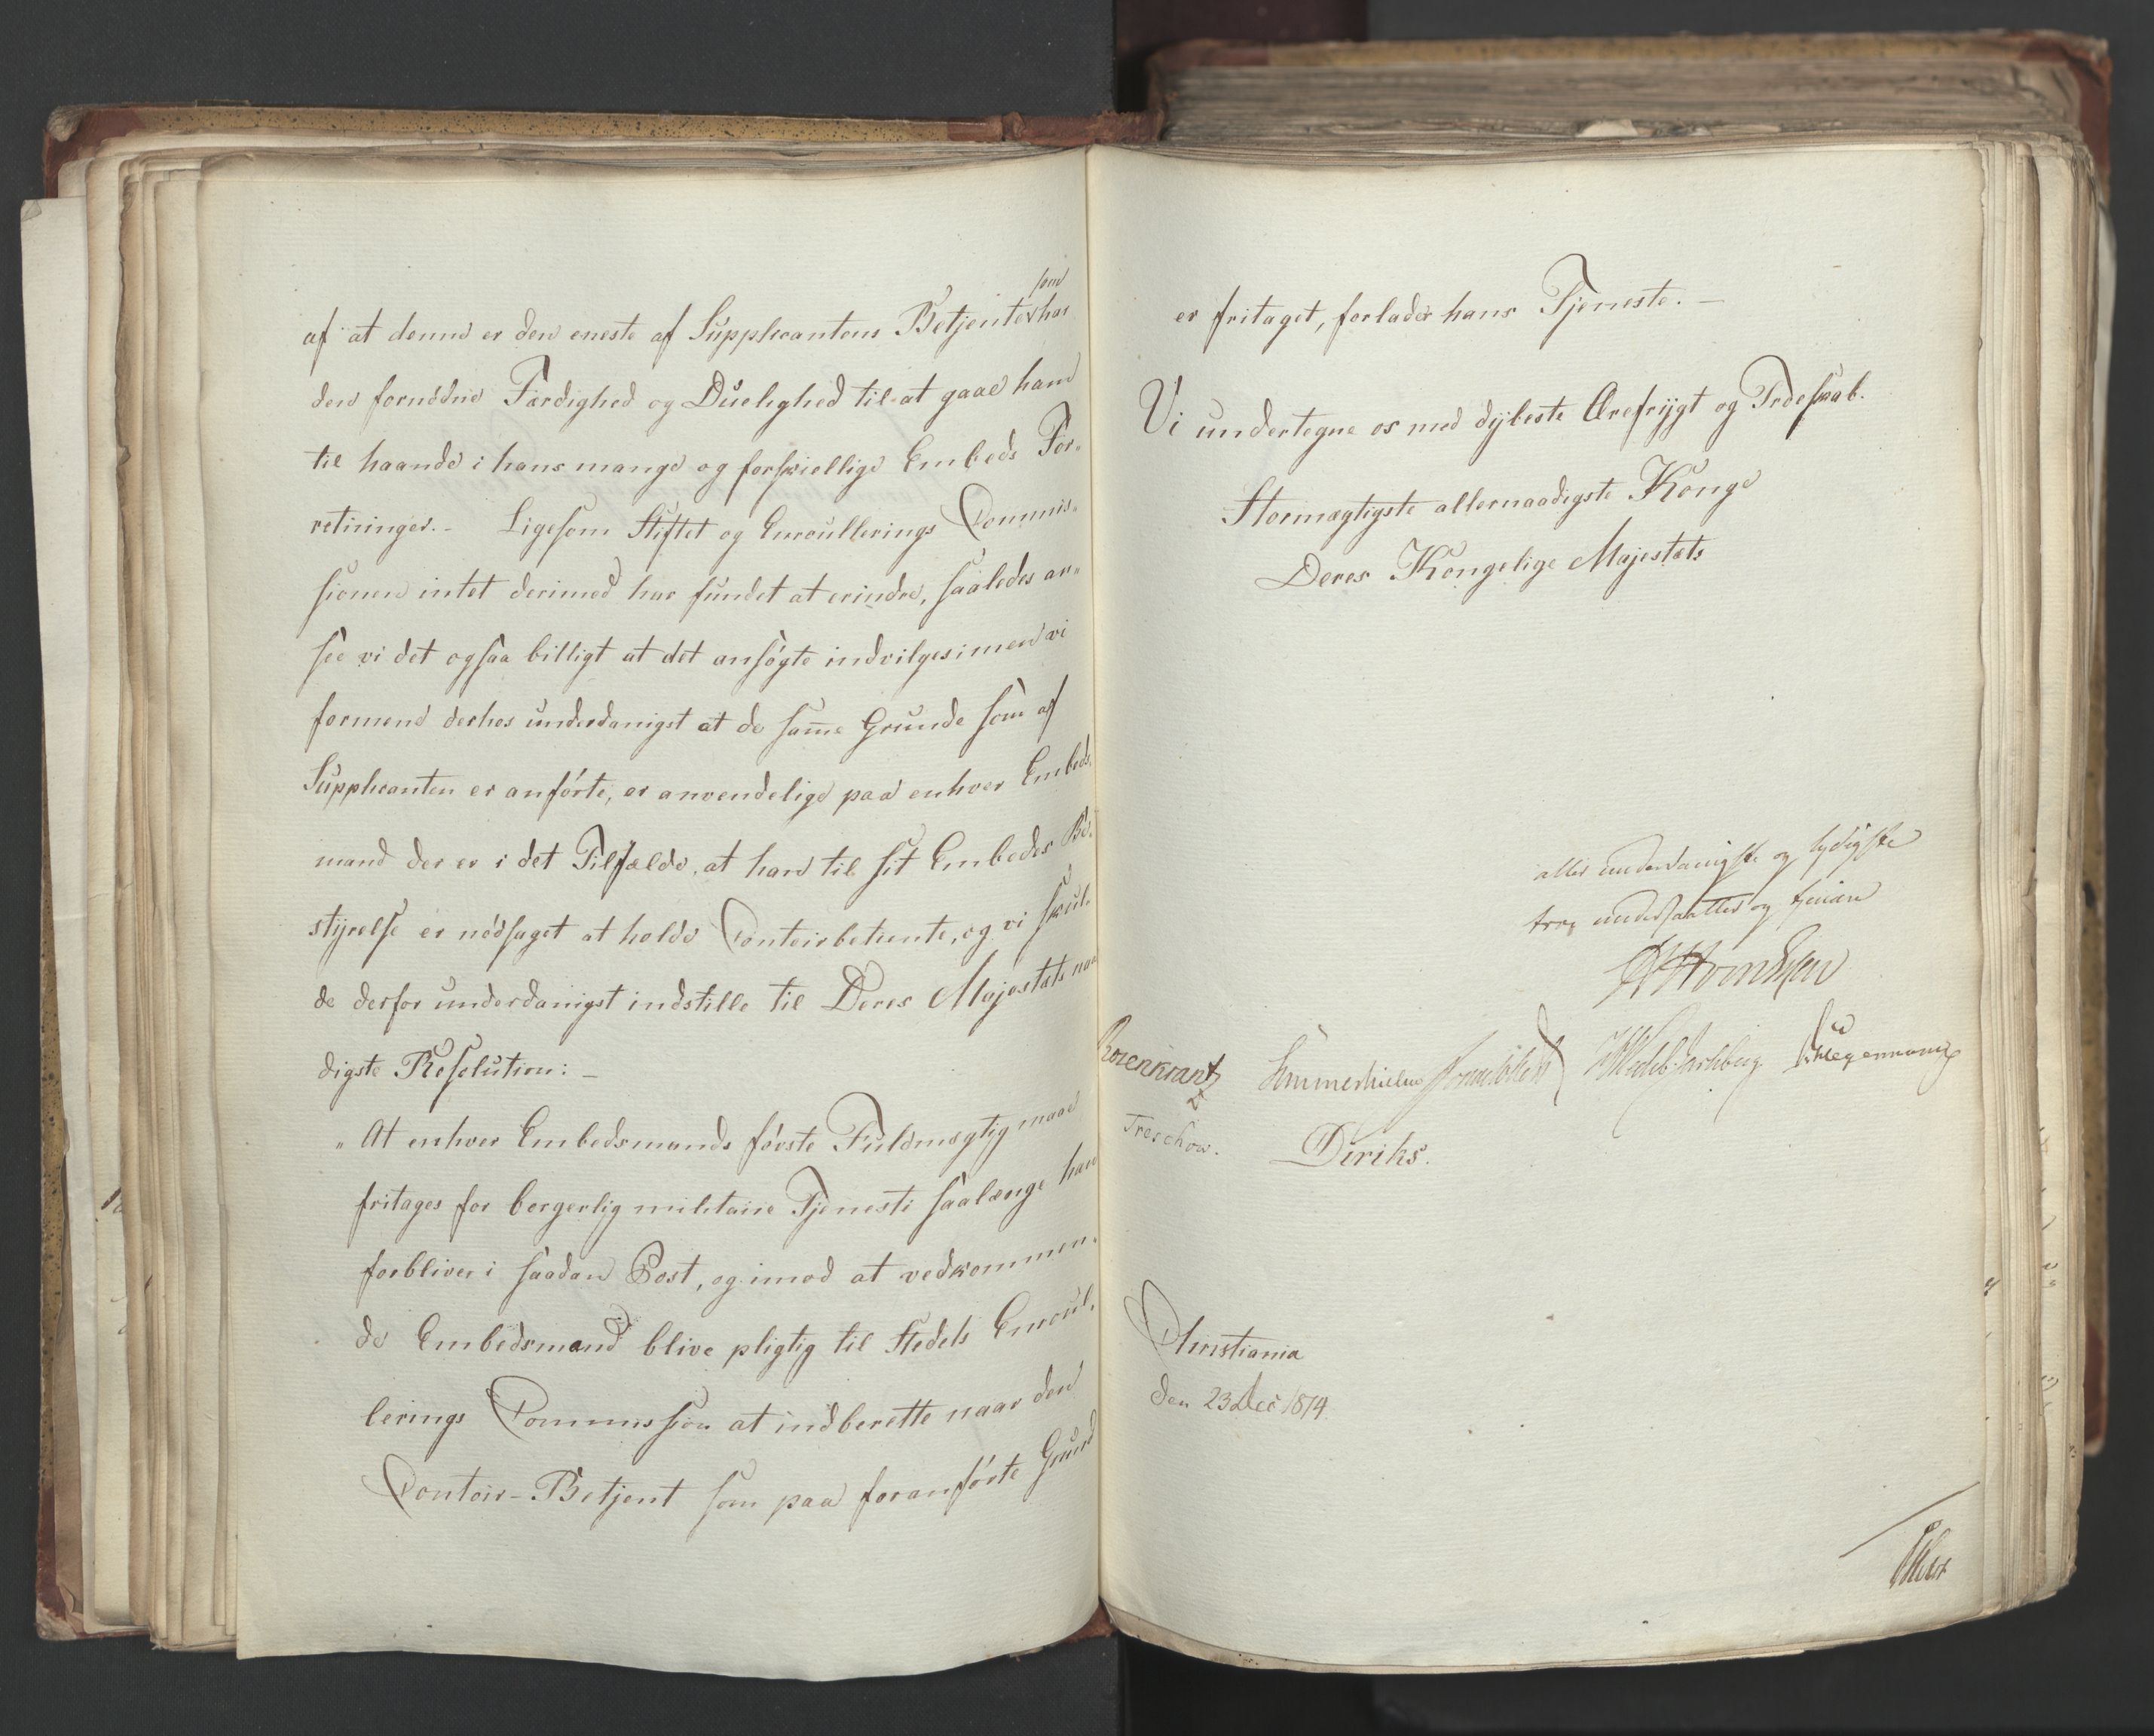 af at denne er den eneste af Supplicantens Betjenter som har
den fornødne Færdighed og Duelighed til at gaae ham
til haande i hans mange og forskiellige Embeds For-
retninger. - Ligesom Stiftet og Enroullerings Commis-
sionen intet derimod har fundet at erindre, saaledes an-
see vi det ogsaa billigt at det ansøgte indvilges; men vi
formene derhos underdanigst at de samme Grunde som af
Supplicanten er anførte, er anvendelige paa enhver Embeds-
mand der er i det Tilfælde, at han til sit Embedes Be-
styrelse er nødsaget at holde Contoirbetiente, og vi skul-
de derfor underdanigst indstille til Deres Majestæts naa
digste Resolution: -
"At enhver Embedsmands første Fuldmægtig maae
fritages for borgerlig militaire Tjeneste saalænge han
forbliver i saadan Post, og imod at vedkommen-
de Embedsmand blive pligtig til Stedets Enroul-
lerings Commission at indberette naar den
Contoir-Betjent som paa foranførte Grund
er fritaget, forlader hans Tjeneste. -
Vi undertegne os med dybeste Ærefrygt og Troeskab.
Stormægtigste allernaadigste Konge
Deres Kongelige Majestæts
aller underdanigste og lydigste
troe undersaatter og tjenere
Rosenkrantz Sommerhielm Wedel-Jarlsberg Hegermann
Treschow. Diriks.
Christiania
den 23 Dec 1814